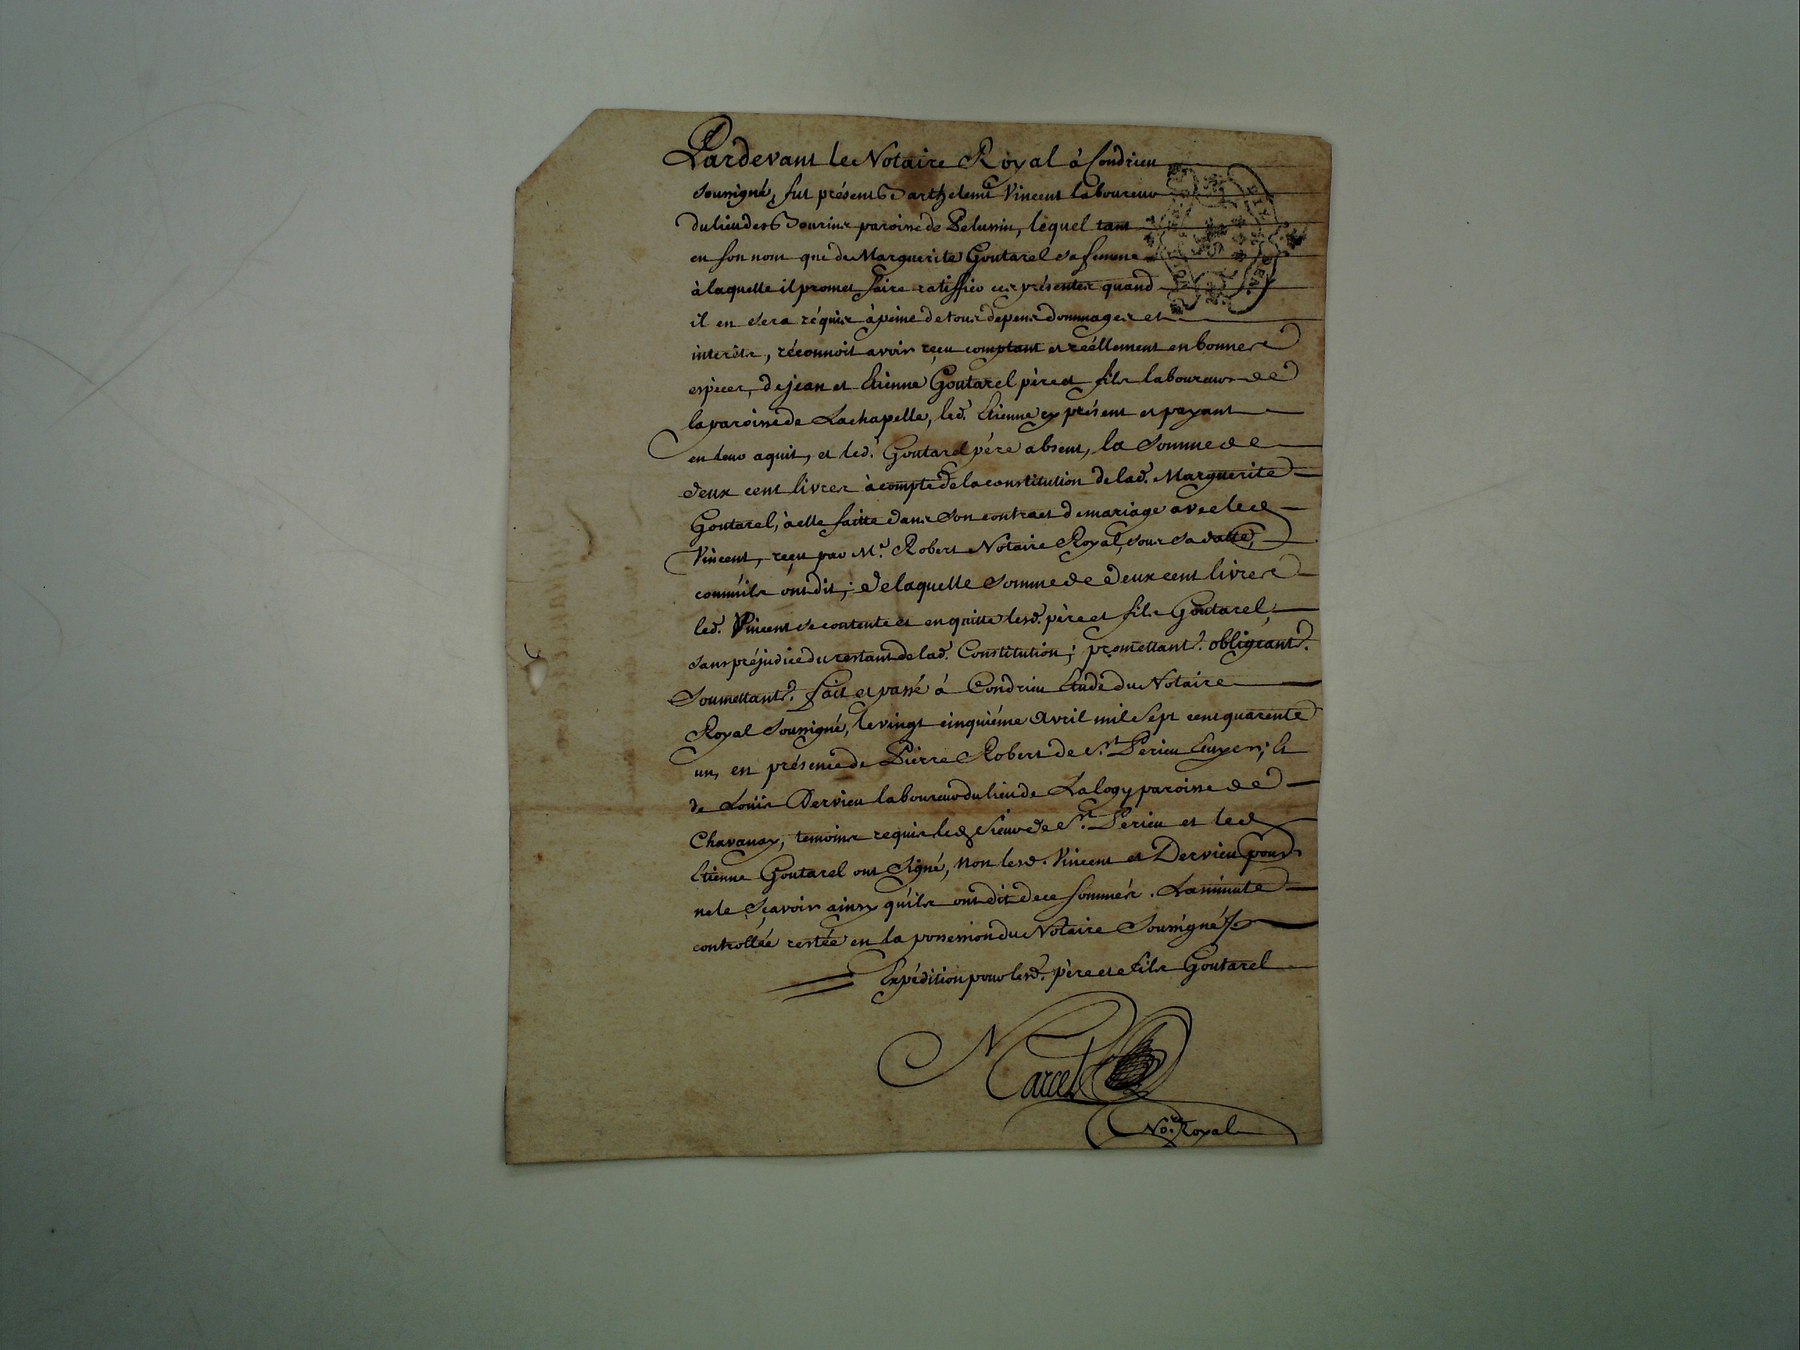 Pardevant le Notaire Royal à Condrieu
soussigné, fut présent Barthelemi Vincent laboureur
du lieu des Bourins paroisse de Pelussin, lequel tant
en son nom que de Marguerite Goutarel sa femme
à laquelle il promet faire ratiffier ces présentes quand
il en sera réquis à peine de tous depens dommages et
interêts, réconnoit avoir reçu comptant et réellement en bonnes
espèces, de jean et Etienne Goutarel père et fils laboureurs de
la paroisse de Lachapelle, led. Etienne cy présent et payant
en leur aquit, et led. Goutarel père absent, la Somme de
deux cent livres à compte de la constitution de lad. Marguerite
Goutarel, à elle faitte dans son contract de mariage avec led
Vincent, reçu par Mr. Robert Notaire Royal, sous sa datte,
comm'ils ont dit; de laquelle somme de deux cent livres
led. Vincent se contente et en quitte lesd. père et fils Goutarel,
sans préjudice du restant de lad. Constitution; promettant. obligeant.
Soumettant. fait et passé à Condrieu Etude du Notaire
Royal Soussigné, le vingt cinquiéme Avril mil Sept cent quarente
un, en présence de Pierre Robert de St. Perieu Ecuyer; Et
de Louis Dervieu laboureur du lieu de Lalogy paroisse de
Chavanay, temoins requis led Sieur de St. Perieu et led
Etienne Goutarel ont Signé, non lesd. Vincent et Dervieu pour
ne le Sçavoir ainsy qu'ils ont dit de ce sommés. La minute
controllée restée en la possession du Notaire Soussigné
Expédition pour lesd. père et fils Goutarel
Marcel
Nore. Royal